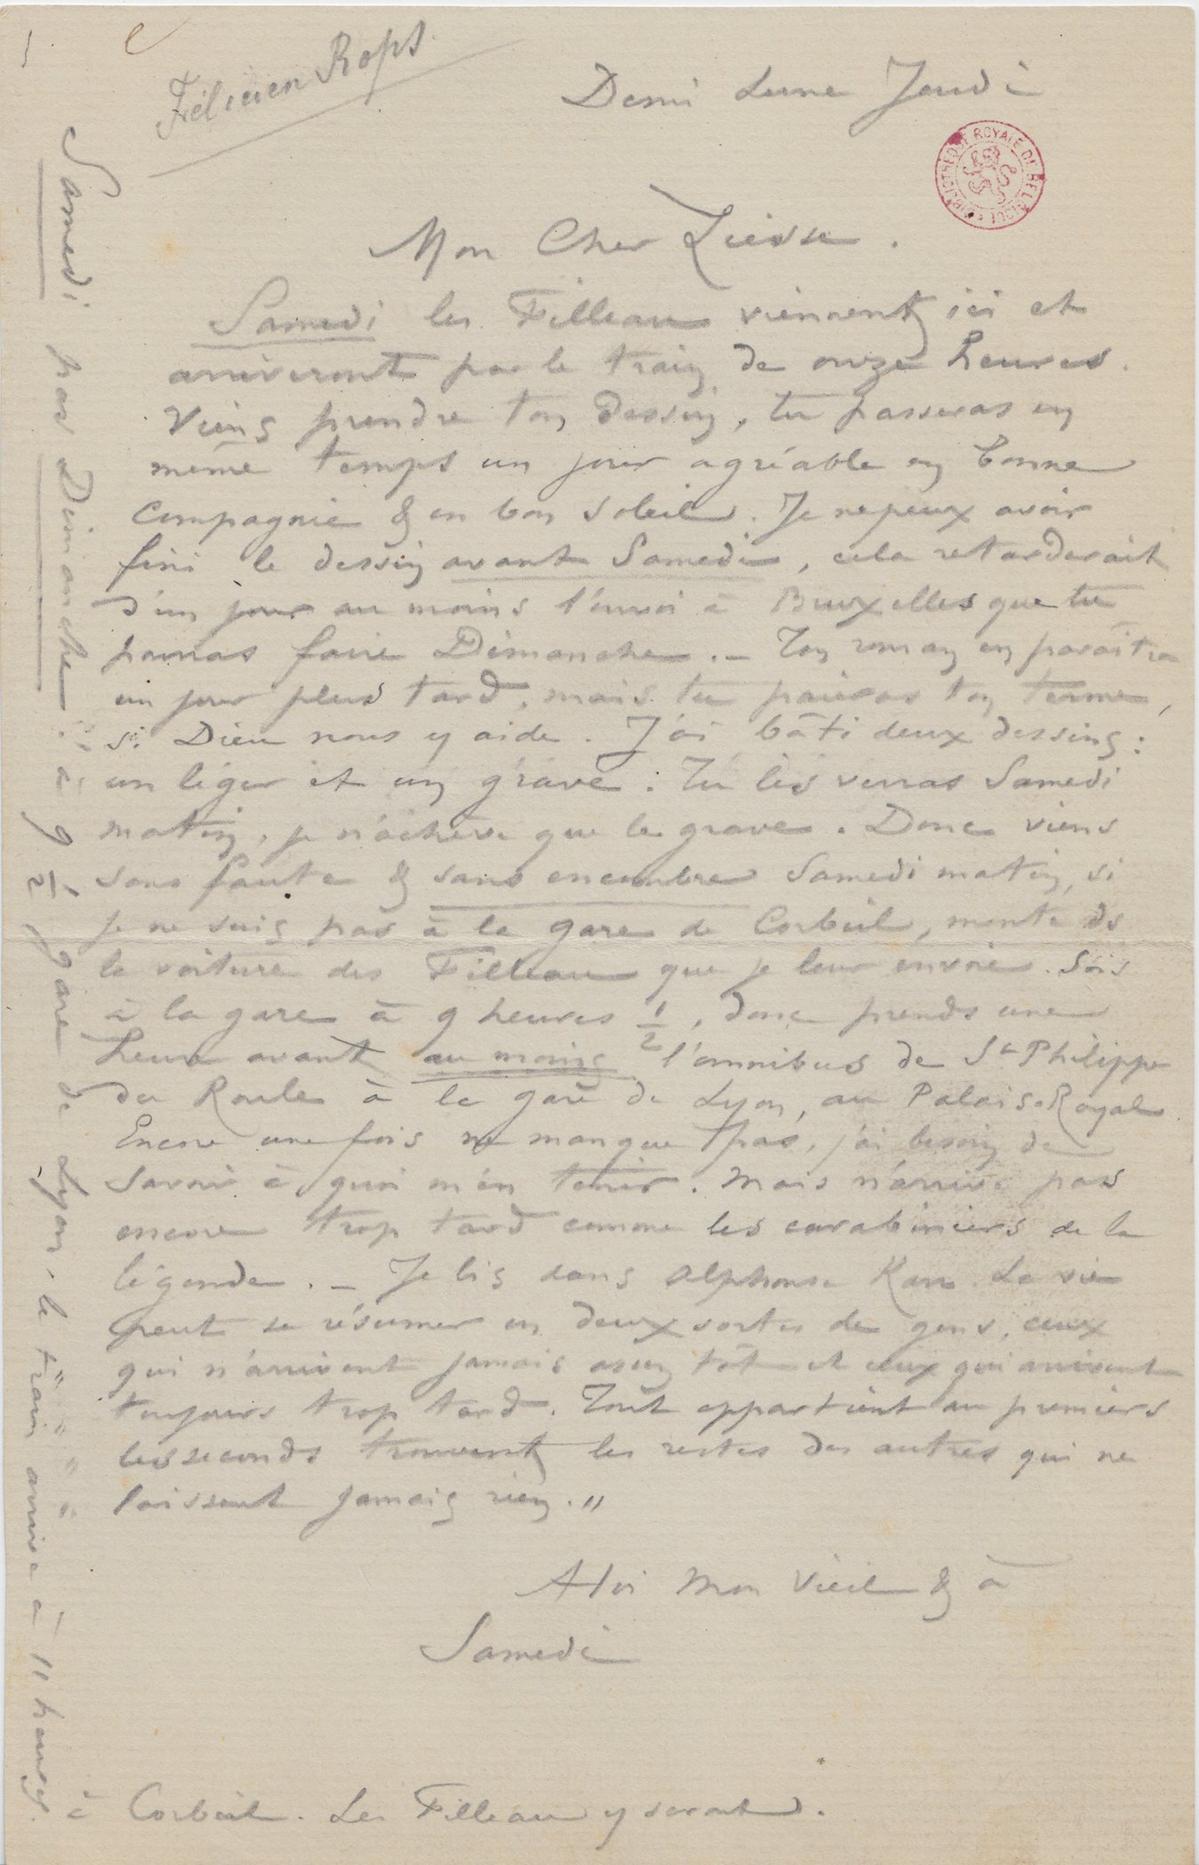 Félicien Rops.
Demi Lune Jeudi
BIBLIOTHEQUE ROYALE DE BELGIQUE
Mon Cher Liesse.
Samedi les Filleau viennent ici et
arriveront par le train de onze heures.
Viens prendre ton dessin, tu passeras en
même temps un jour agréable en bonne
compagnie & en bon soleil. Je ne peux avoir
fini le dessin avant Samedi, cela retarderait
d'un jour au moins l'envoi à Bruxelles que tu
pourras faire Dimanche. – Ton roman en paraîtra
un jour plus tard, mais tu paieras ton terme,
si Dieu nous y aide. J'ai bâti deux dessins:
un léger et un grave: Tu les verras Samedi
matin, je n'achève que le grave. Donc viens
sans faute & sans encombre Samedi matin, si
je ne suis pas à la gare de Corbeil, monte ds
la voiture des Filleau que je leur envoie. Sois
à la gare à 9 heures 1/2, donc prends une
heure avant au moins l'omnibus de St Philippe
du Roule à la gare de Lyon, au Palais-Royal.
Encore une fois ne manque pas, j'ai besoin de
savoir à quoi m'en tenir. Mais n'arrive pas
encore trop tard comme les carabiniers de la
légende. – Je lis dans Alphonse Karr. La vie
peut se résumer en deux sortes de gens, ceux
qui n'arrivent jamais assez tôt et ceux qui arrivent
toujours trop tard. Tout appartient au premiers
les seconds trouvent les restes des autres qui ne
laissent jamais rien."
A toi Mon Vieil & à
Samedi
Samedi pas Dimanche!! à 9 1/2 gare de Lyon, le train arrive à 11 heures
à Corbeil. Les Filleau y seront.